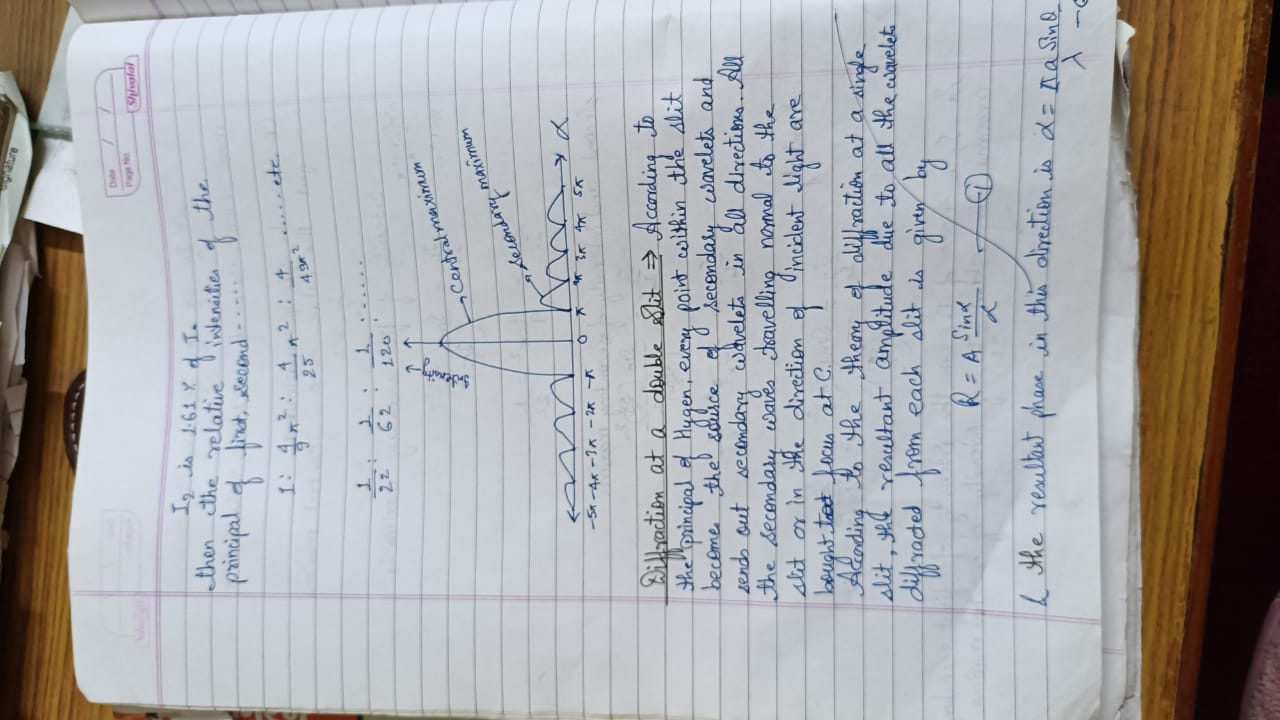 Date / /
Page No.
Shivalal
signature
I₂ is 1.61 % of I₀
then the relative intensities of the
principal of first, second-----
1 : 4/9π² : 4/25π² : 4/49π² ......etc
1/22 : 1/62 : 1/120 : ......
central maximum
secondary maximum
-5π -4π -3π -2π -π 0 π 2π 3π 4π 5π α
Diffraction at a double slit ⇒ According to
the principal of Hygen, every point within the slit
become the source of secondary wavelets and
sends out secondary wavelets in all directions. All
the secondary waves travelling normal to the
slit or in the direction of incident light are
bought focus at C.
According to the theory of diffraction at a single
slit, the resultant amplitude due to all the wavelets
diffracted from each slit is given by
R = A Sinα/α — 1
& the resultant phase in this direction is α = πa Sinθ/λ